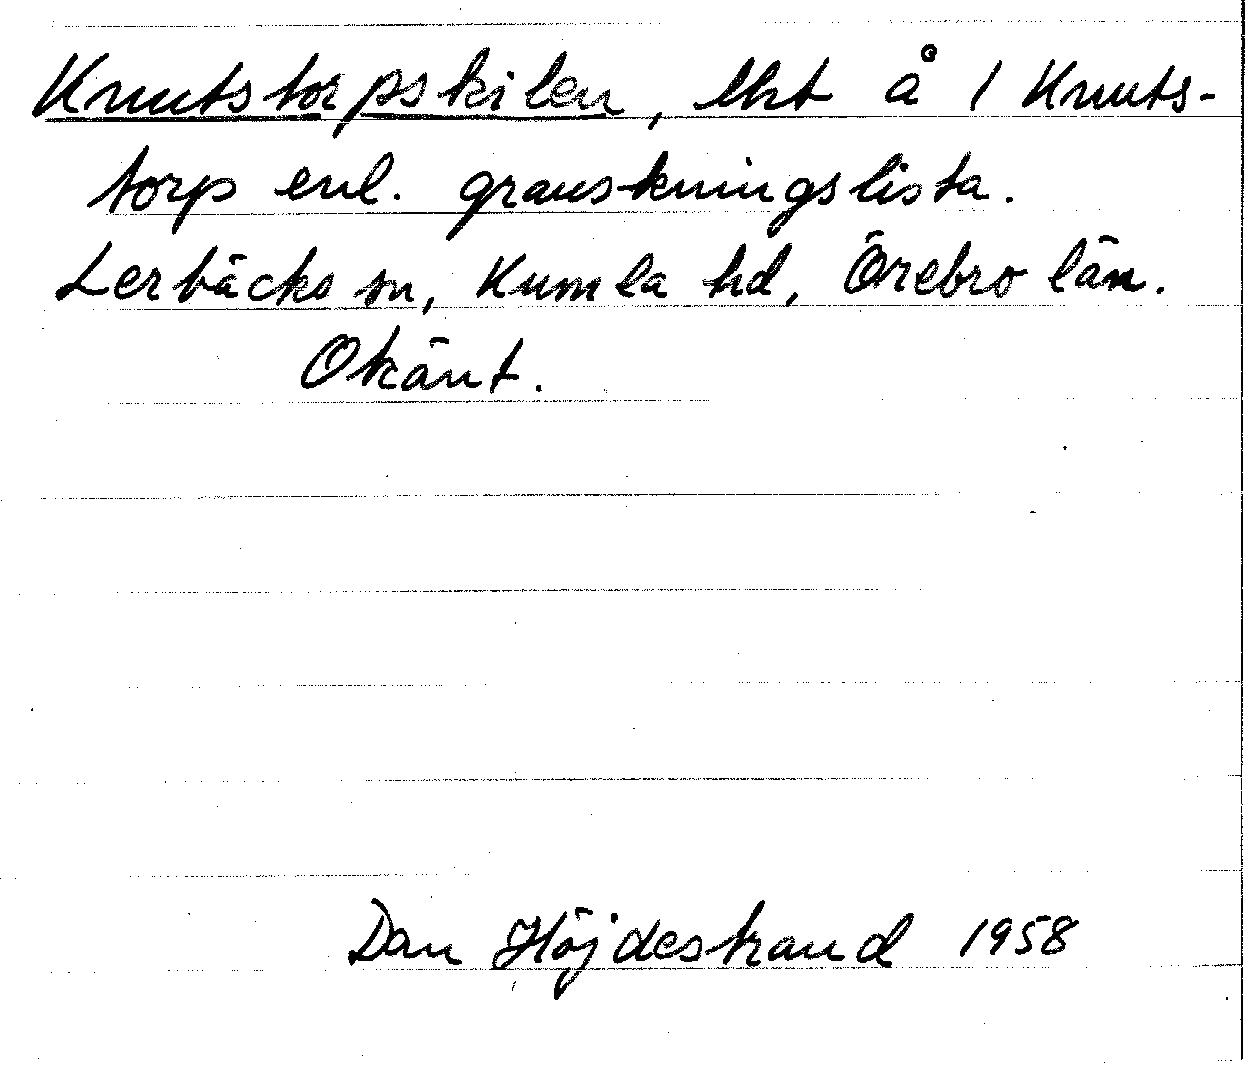 Knutstorpskilen, lht å 1 Knuts-
torp enl. granskningslista.
Lerbäcks sn, Kumla hd, Örebro län.
Okänt.
Dan Höjdestrand 1958